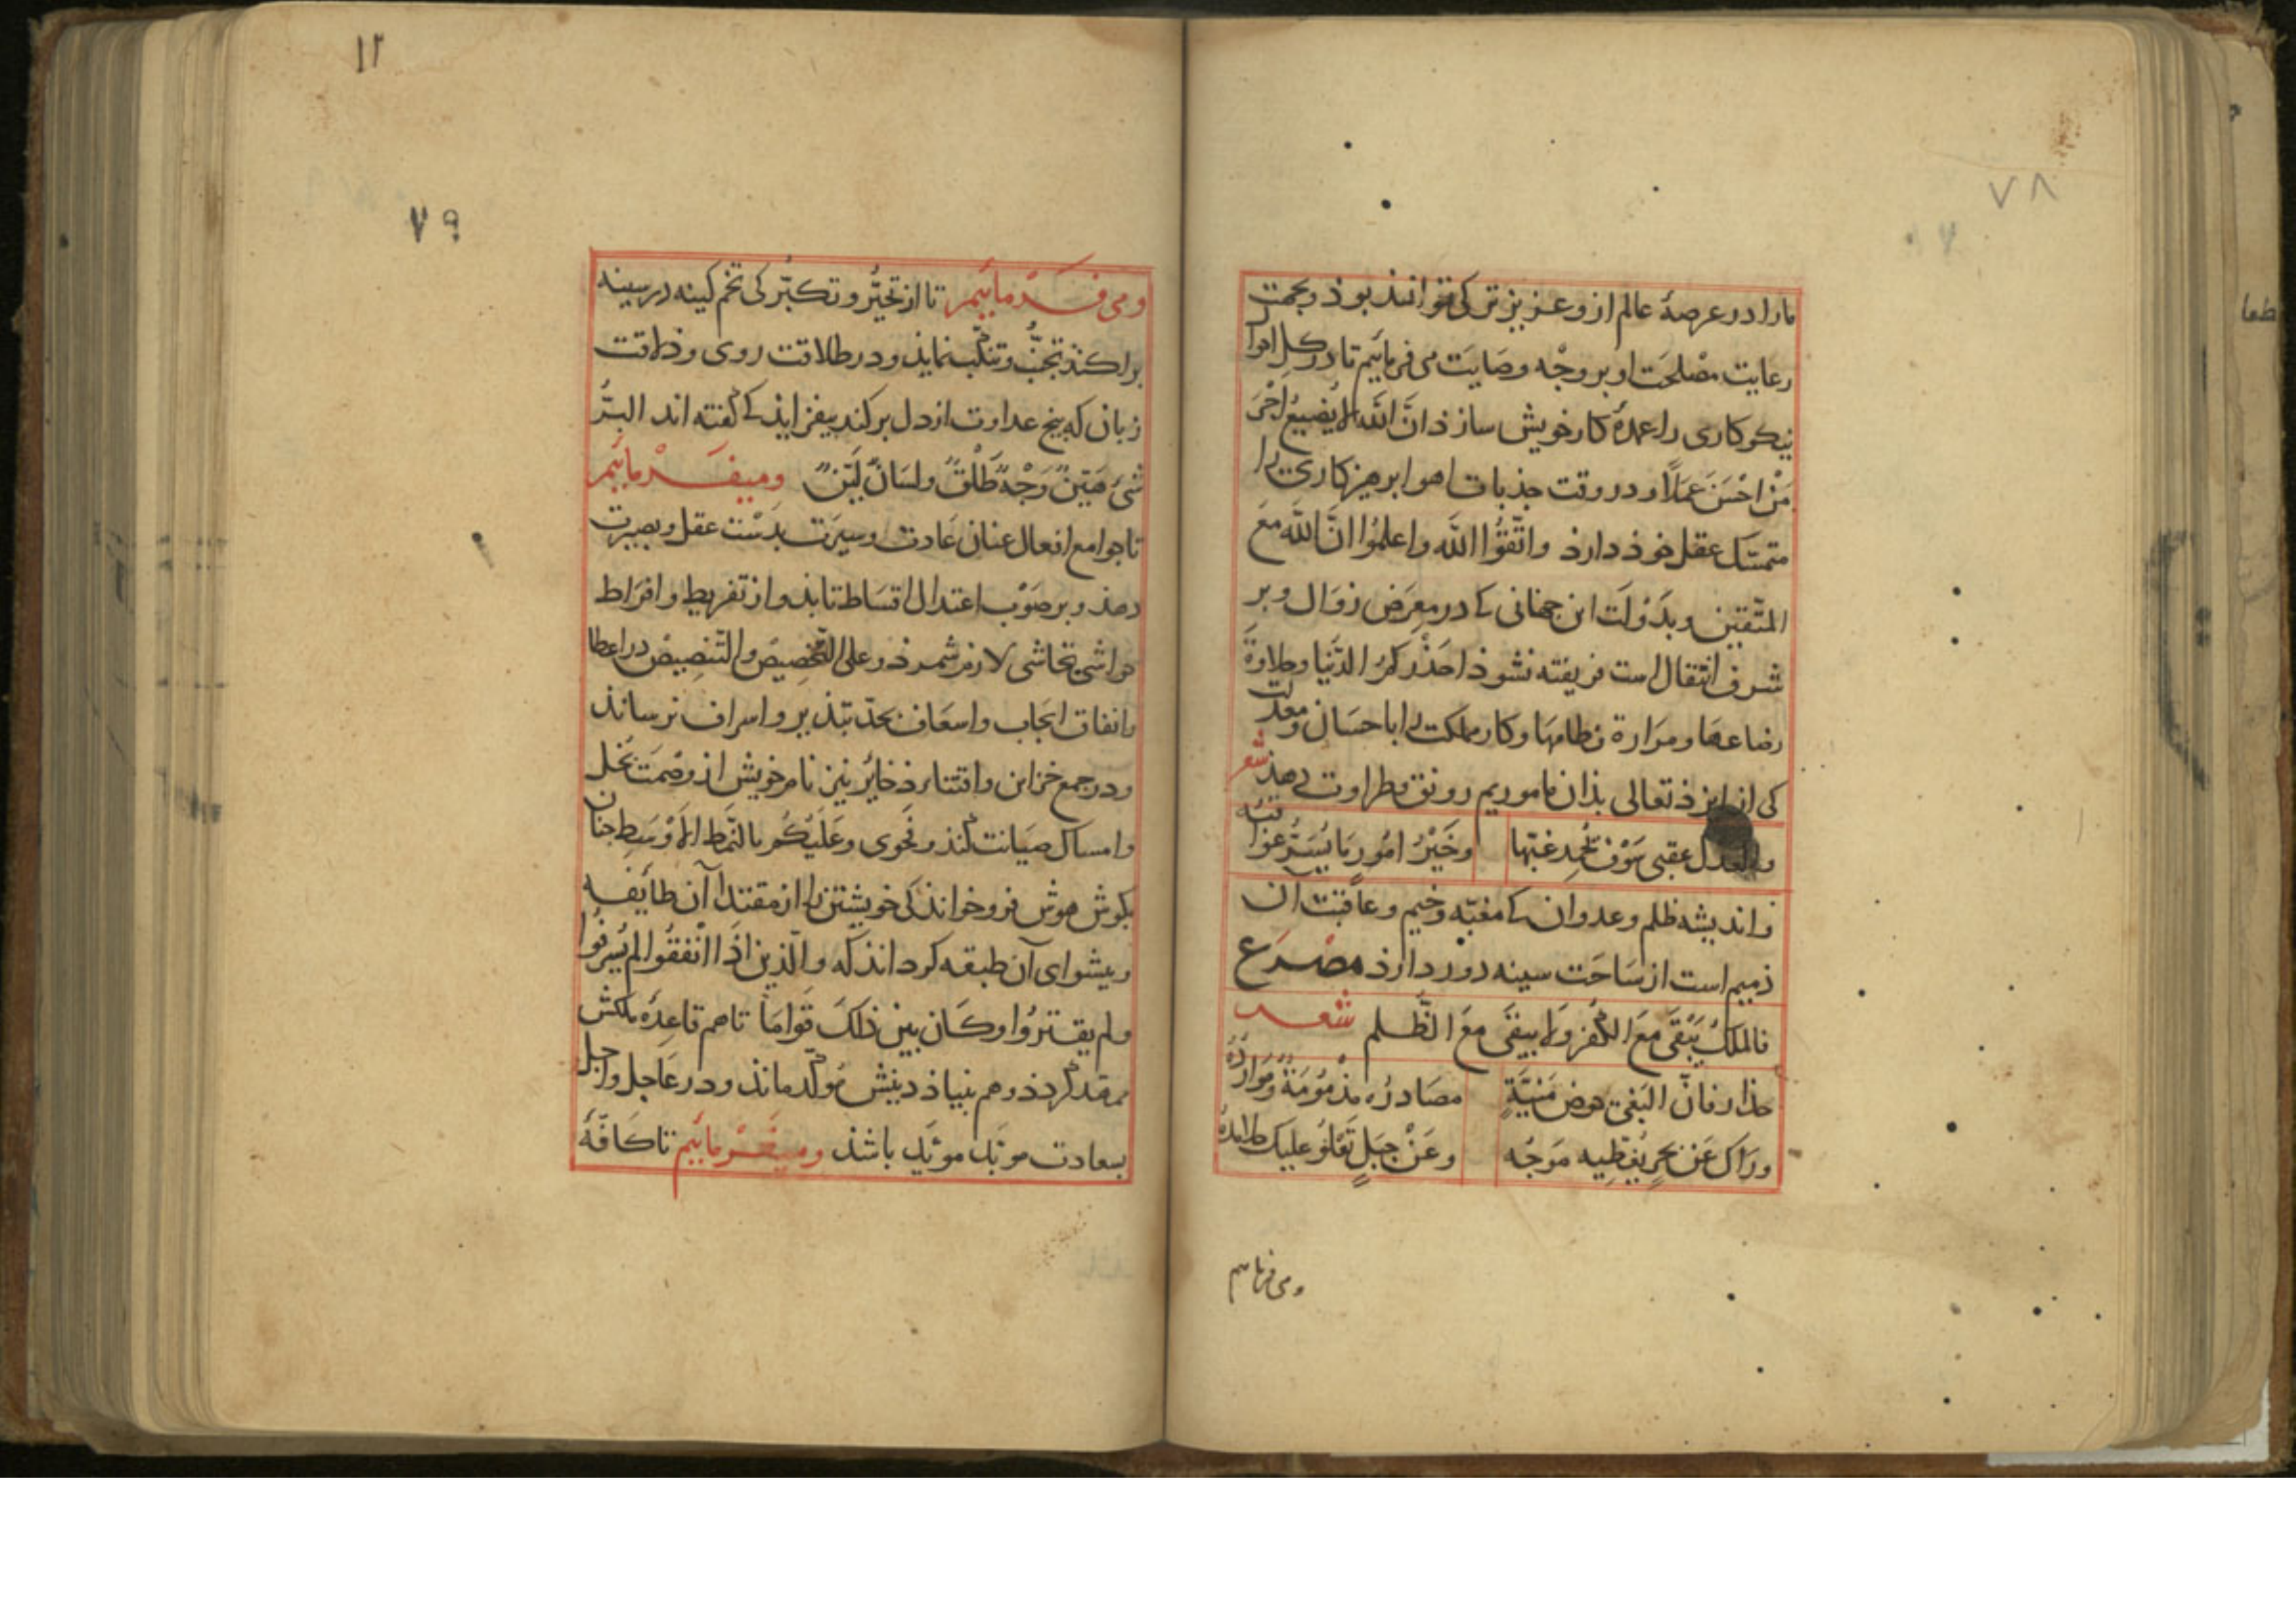 ٧٨
ما را در عرصهٔ عالم ازو عزیزتر کی تواند بوذ و بجهت
رعایت مصلحت او بر وجه وصایت می فرمائیم تا در کل احوال
نیکوکاری را عمدهٔ کار خویش سازذ انّ الله لا یضیع اجر
من احسن عملاً و در وقت جذبات اهوا برهیزکاری را
متمسّک عقل خوذ دارذ واتّقوا الله واعلموا انّ الله مع
المتّقین و بدولت این جهانی که در معرض زوال و بر
شرف انتقال است فریفته نشوذ احذرکم الدّنیا وحلاوة
رضاعها ومرارة فطامها و کار مملکت را باحسان و معدلت
کی از ایزذ تعالی بذان ماموریم رونق و طراوت دهذ شعر
وللعدل عقبی سوف تحمد غبّها وخیر امور ما یسرّ عواقبه
و اندیشه ظلم و عدوان که مغبّه وخیم و عاقبت آن
ذمیم است از ساحت سینه دور دارذ مصرع
فالملک یبقی مع الکفر ولا یبقی مع الظّلم شعر
حذار فانّ البغی حوض منیّةٍ مصادره مذمومة وموارده
وراک عن بحرٍ یغطّیه موجُه وعن جبلٍ تعلو علیک
ومی فرمایم
١٢
٧٩
ومی فرمائیم تا از تجبّر و تکبّر کی تخم کینه در سینه
براکنذ تجنّب و تنکّب نمایذ و در طلاقت روی و ذلاقت
زبان که بیخ عداوت از دل برکند بیفزایذ که گفته اند البرّ
شیء هیّنٌ وجهٌ طلقٌ ولسانٌ لیّنٌ ومیفرمائیم
تا جوامع افعال عنان عادت و سیرت بدست عقل و بصیرت
دهذ و بر صوب اعتدال اقتساط تابذ و از تفریط و افراط
حواشی تحاشی لازم شمرذ و علی التّخصیص والتّنصیص در اعطا
و انفاق ایجاب و اسعاف بحدّ تبذیر و اسراف نرساند
و در جمع خزاین و اقتناء ذخایر نیز نام خویش از وصمت بخل
و امساک صیانت کنذ و فحوی وعلیکم بالنّمط الاوسط جنان
بکوش هوش فرو خواند کی خویشتن را از مقتدا آن طایفه
و بیشوای آن طبقه کرداند که والّذین اذا انفقوا لم یسرفوا
ولم یقتروا وکان بین ذلک قواماً تا هم قاعدهٔ ملکش
ممهّد گردذ و هم بنیاذ دینش موکّد ماند و در عاجل و اجل
بسعادت موبّد موئید باشد ومیفرمائیم تا کافّهٔ